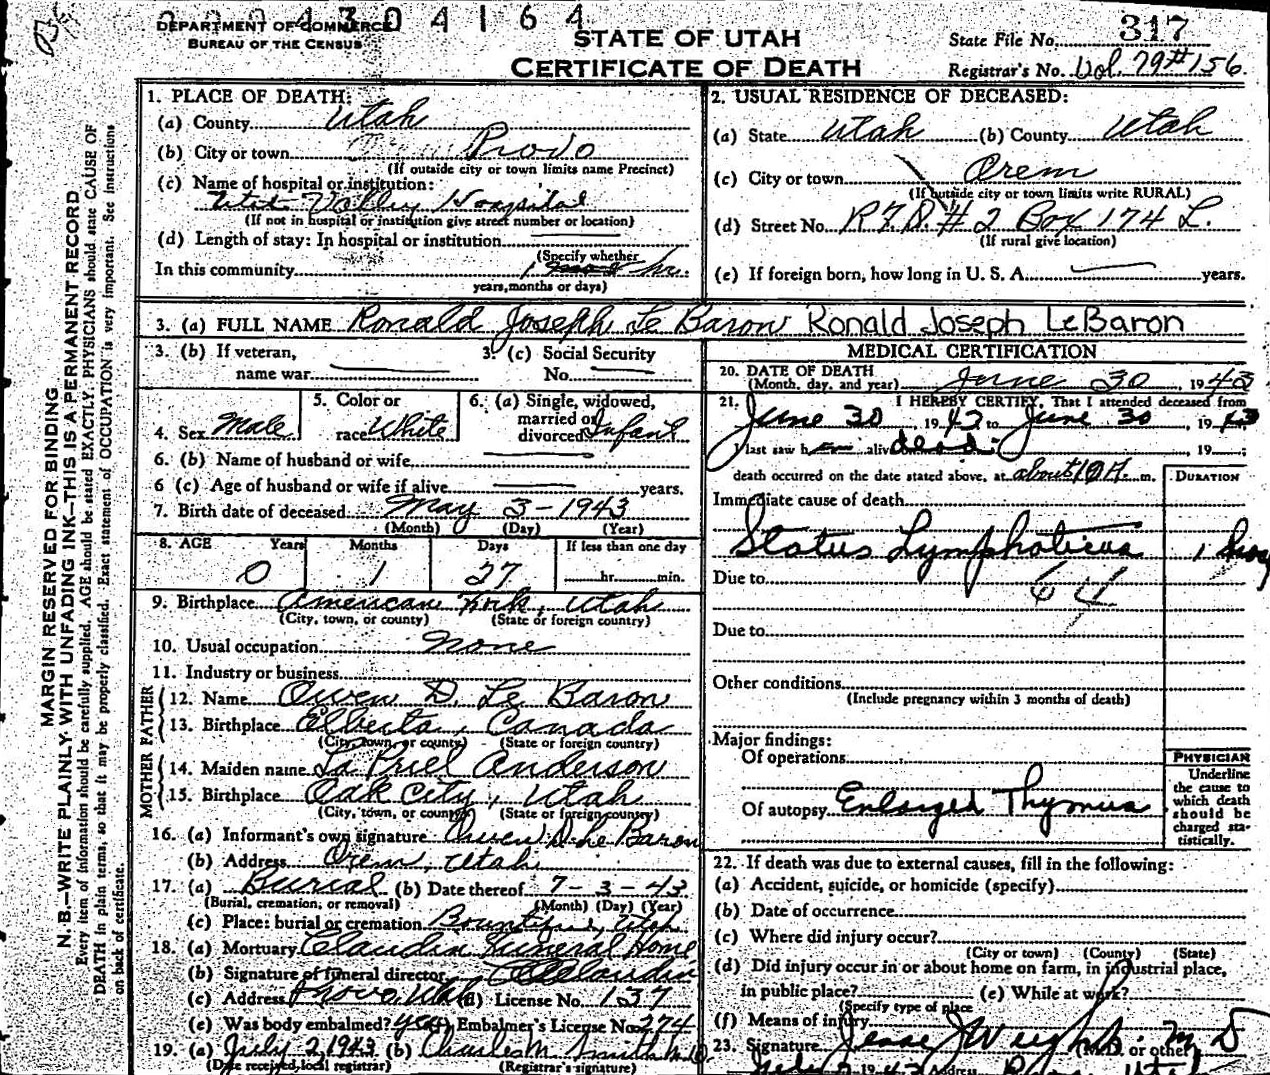 004304164
DEPARTMENT OF COMMERCE
BUREAU OF THE CENSUS
STATE OF UTAH
CERTIFICATE OF DEATH
State File No. 317
Registrar's No. Vol. 79 # 156
MARGIN RESERVED FOR BINDING
N. B.—WRITE PLAINLY WITH UNFADING INK—THIS IS A PERMANENT RECORD
Every item of information should be carefully supplied. AGE should be stated EXACTLY. PHYSICIANS should state CAUSE OF
DEATH in plain terms, so that it may be properly classified. Exact statement of OCCUPATION is very important. See instructions
on back of certificate.
1. PLACE OF DEATH:
(a) County Utah
(b) City or town Provo
(If outside city or town limits name Precinct)
(c) Name of hospital or institution:
Utah Valley Hospital
(If not in hospital or institution give street number or location)
(d) Length of stay: In hospital or institution
(Specify whether
In this community 1 hr.
years, months or days)
2. USUAL RESIDENCE OF DECEASED:
(a) State Utah (b) County Utah
(c) City or town Orem
(If outside city or town limits write RURAL)
(d) Street No. R.F.D. # 2 Box 174 L.
(If rural give location)
(e) If foreign born, how long in U. S. A. years.
3. (a) FULL NAME Ronald Joseph Le Baron Ronald Joseph LeBaron
3. (b) If veteran,
name war
3. (c) Social Security
No.
4. Sex Male
5. Color or
race White
6. (a) Single, widowed,
married or
divorced Infant
6. (b) Name of husband or wife
6 (c) Age of husband or wife if alive years.
7. Birth date of deceased May 3 - 1943
(Month) (Day) (Year)
8. AGE Years Months Days If less than one day
0 1 27 hr. min.
9. Birthplace American Fork, Utah
(City, town, or county) (State or foreign country)
10. Usual occupation none
11. Industry or business
FATHER
12. Name Owen D. Le Baron
13. Birthplace Elberta, Canada
(City, town, or county) (State or foreign country)
MOTHER
14. Maiden name La Priel Anderson
15. Birthplace Oak City, Utah
(City, town, or county) (State or foreign country)
16. (a) Informant's own signature Owen D. Le Baron
(b) Address Orem, Utah
17. (a) Burial (b) Date thereof 7 - 3 - 43
(Burial, cremation, or removal) (Month) (Day) (Year)
(c) Place: burial or cremation Bountiful, Utah
18. (a) Mortuary Claudin Funeral Home
(b) Signature of funeral director Claudin
(c) Address Provo, Utah (d) License No. 137
(e) Was body embalmed? yes (f) Embalmer's License No. 274
19. (a) July 2, 1943 (b) Charles M. Smith M.D.
(Date received local registrar) (Registrar's signature)
MEDICAL CERTIFICATION
20. DATE OF DEATH
(Month, day, and year) June 30, 1943
21. I HEREBY CERTIFY, That I attended deceased from
June 30, 1943 to June 30, 1943
I last saw h alive dead, 19 ;
death occurred on the date stated above, at about m.
DURATION
Immediate cause of death
Status Lymphaticus 1
Due to 64
Due to
Other conditions
(Include pregnancy within 3 months of death)
Major findings:
Of operations
Of autopsy Enlarged Thymus
PHYSICIAN
Underline
the cause to
which death
should be
charged sta-
tistically.
22. If death was due to external causes, fill in the following:
(a) Accident, suicide, or homicide (specify)
(b) Date of occurrence
(c) Where did injury occur?
(City or town) (County) (State)
(d) Did injury occur in or about home on farm, in industrial place,
in public place? (e) While at work?
(Specify type of place
(f) Means of injury
23. Signature Jesse J Weight M D
(M.D. or other)
July 2 1943 Address Provo Utah